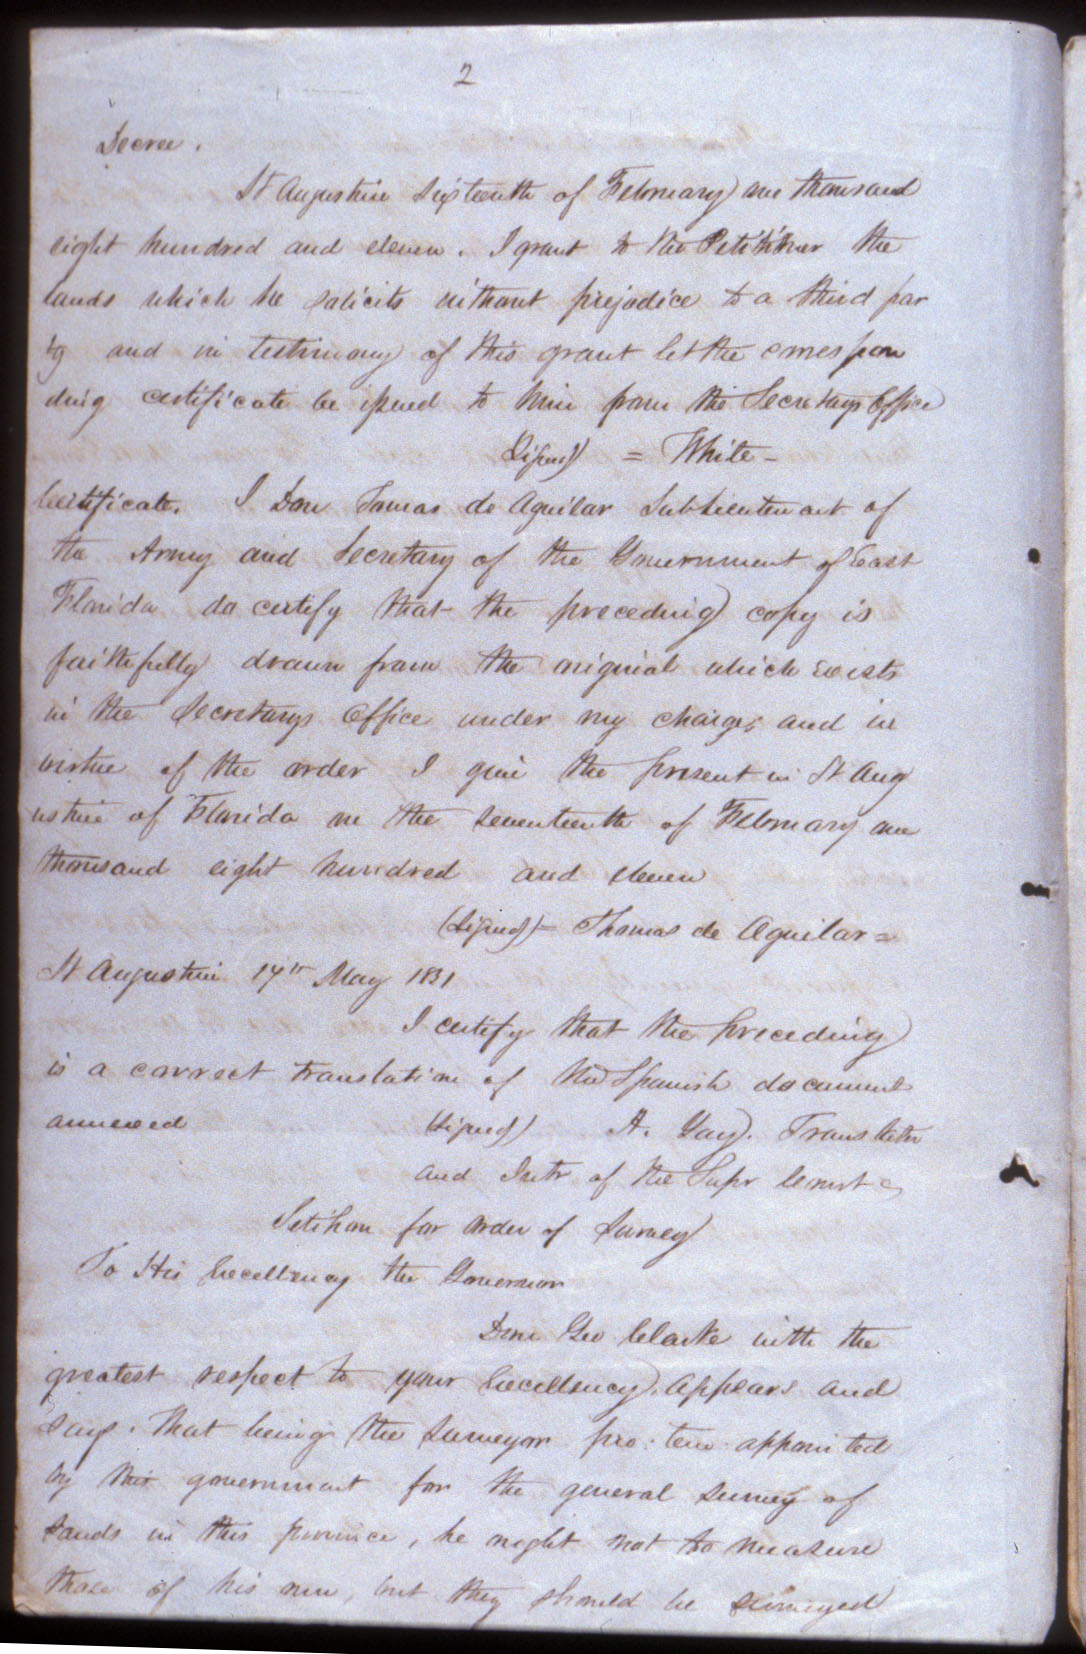 2
Decree.
St Augustine Sixteenth of February one thousand
eight hundred and eleven. I grant to the Petitioner the
lands which he solicits without prejodice to a third par
ty and in testimony of this grant let the correspon
ding certificate be issued to him from the Secretarys Office
(Signed) = White -
Certificate. I Don Tomas de Aguilar SubLieutenant of
the Army and Secretary of the Government of East
Florida do certify that the preceding copy is
faithfully drawn from the original which exists
in the Secretarys Office under my charge, and in
virtue of the order I give the present in St Aug
ustine of Florida on the seventeenth of February one
thousand eight hundred and eleven
(Signed) = Thomas de Aguilar =
St Augustine 14th May 1831
I certify that the preceding
is a correct translation of the Spanish document
annexed (Signed) A. Gay. Translator
and Intr of the Supr Court
Petition for order of Survey
To His Excellency the Governor
Don Geo Clarke with the
greatest respect to your Excellency, appears and
says. That being the Surveyor pro. tem. appointed
by this government for the general survey of
Lands in this province, he ought not to measure
those of his own, but they should be surveyed